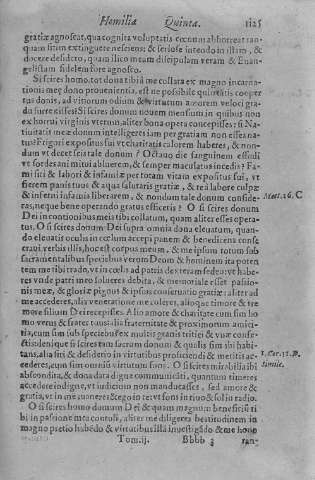 Homiliæ Quinta. 1125
gratiæ agnoscat, qua cognita voluptatis cœnum abhorreat tan-
quam sitim extinguere nesciens; & seriose intendo in illam, &
docere desidero, quam illico meum discipulum veram & Euan-
gelistam fidelem fore agnosco.
Si scires homo, tot dona tibi à me collata ex magno incarna-
tionis meæ dono prouenientia, est ne possibile quin
tus donis, ad vitiorum odium & virtutum amorem veloci gra-
du fuere esses? Si scires donum nouem mensium in quibus non
ex horrui virginis vterum, aliter bona opera concepisses: si Na-
tiuitatis meæ donum intelligeres iam per gratiam non esses na-
tus? Frigori expositus fui vt charitatis calorem haberes, & non-
dum vt decet scis tale donum? Octauo die sanguinem effudi
vt sordes animi tui abluerem, & semper maculatus incedis? Fa-
mi siti & labori & infamiæ per totam vitam expositus fui, vt
fierem panis tuus & aqua salutaris gratiæ, & te à labore culpæ
& inferni infamis liberarem, & nondum tale donum conside-
res, neque bene operando gratus efficeris? O si scires donum
Dei in contionibus meis tibi collatum, quam aliter esses opera-
tus. O si scires donum Dei supra omnia dona eleuatum, quan-
do eleuatis oculis in cœlum accepi panem & benedicens conse-
craui verbis illis, hoc est corpus meum. & me ipsum totum sub
sacramentalibus speciebus verum Deum & hominem ita poten-
tem me tibi trado, vt in cœlo ad patris dexteram sedeo: vt habe-
res vnde patri meo solueres debita, & memoriale esset passio-
nis meæ, & gloriæ pignus & ipsius conseruatio gratiæ: aliter ad
me accederes, alia veneratione me coleres, alioque timore & tre-
more filium Dei recepisses. Alio amore & charitate cum sim ho-
mo verus & frater tuus: alia fraternitate & proximorum amici-
tia, cum sim sub speciebus ex multis granis tritici & vuæ confe-
ctis: denique si scires tam sacrum donum & qualis sim ibi habi-
tans, alia siti & desiderio in virtutibus proficiendi & me sitis ac-
cederes, cum sim omnium virtutum fons. O si scires mirabilia ibi
abscondita, & dona data digna communicāti, quantum timeres
accedere indigne, vt iudicium non manducasses, sed amore &
gratia, vt in me maneres & ego in te: vt fons in riuo & sol in radio.
O si scires homo donum Dei & quam magnum beneficiū ti
bi in passione mea contuli, aliter me diligeres beatitudinem in
magno pretio habēdo & virtutibus illā inuestigādo & me homo
Tom. ij. Bbbb 3 ran-
Matt. 26. C
1. Cor. 11.
Simile.